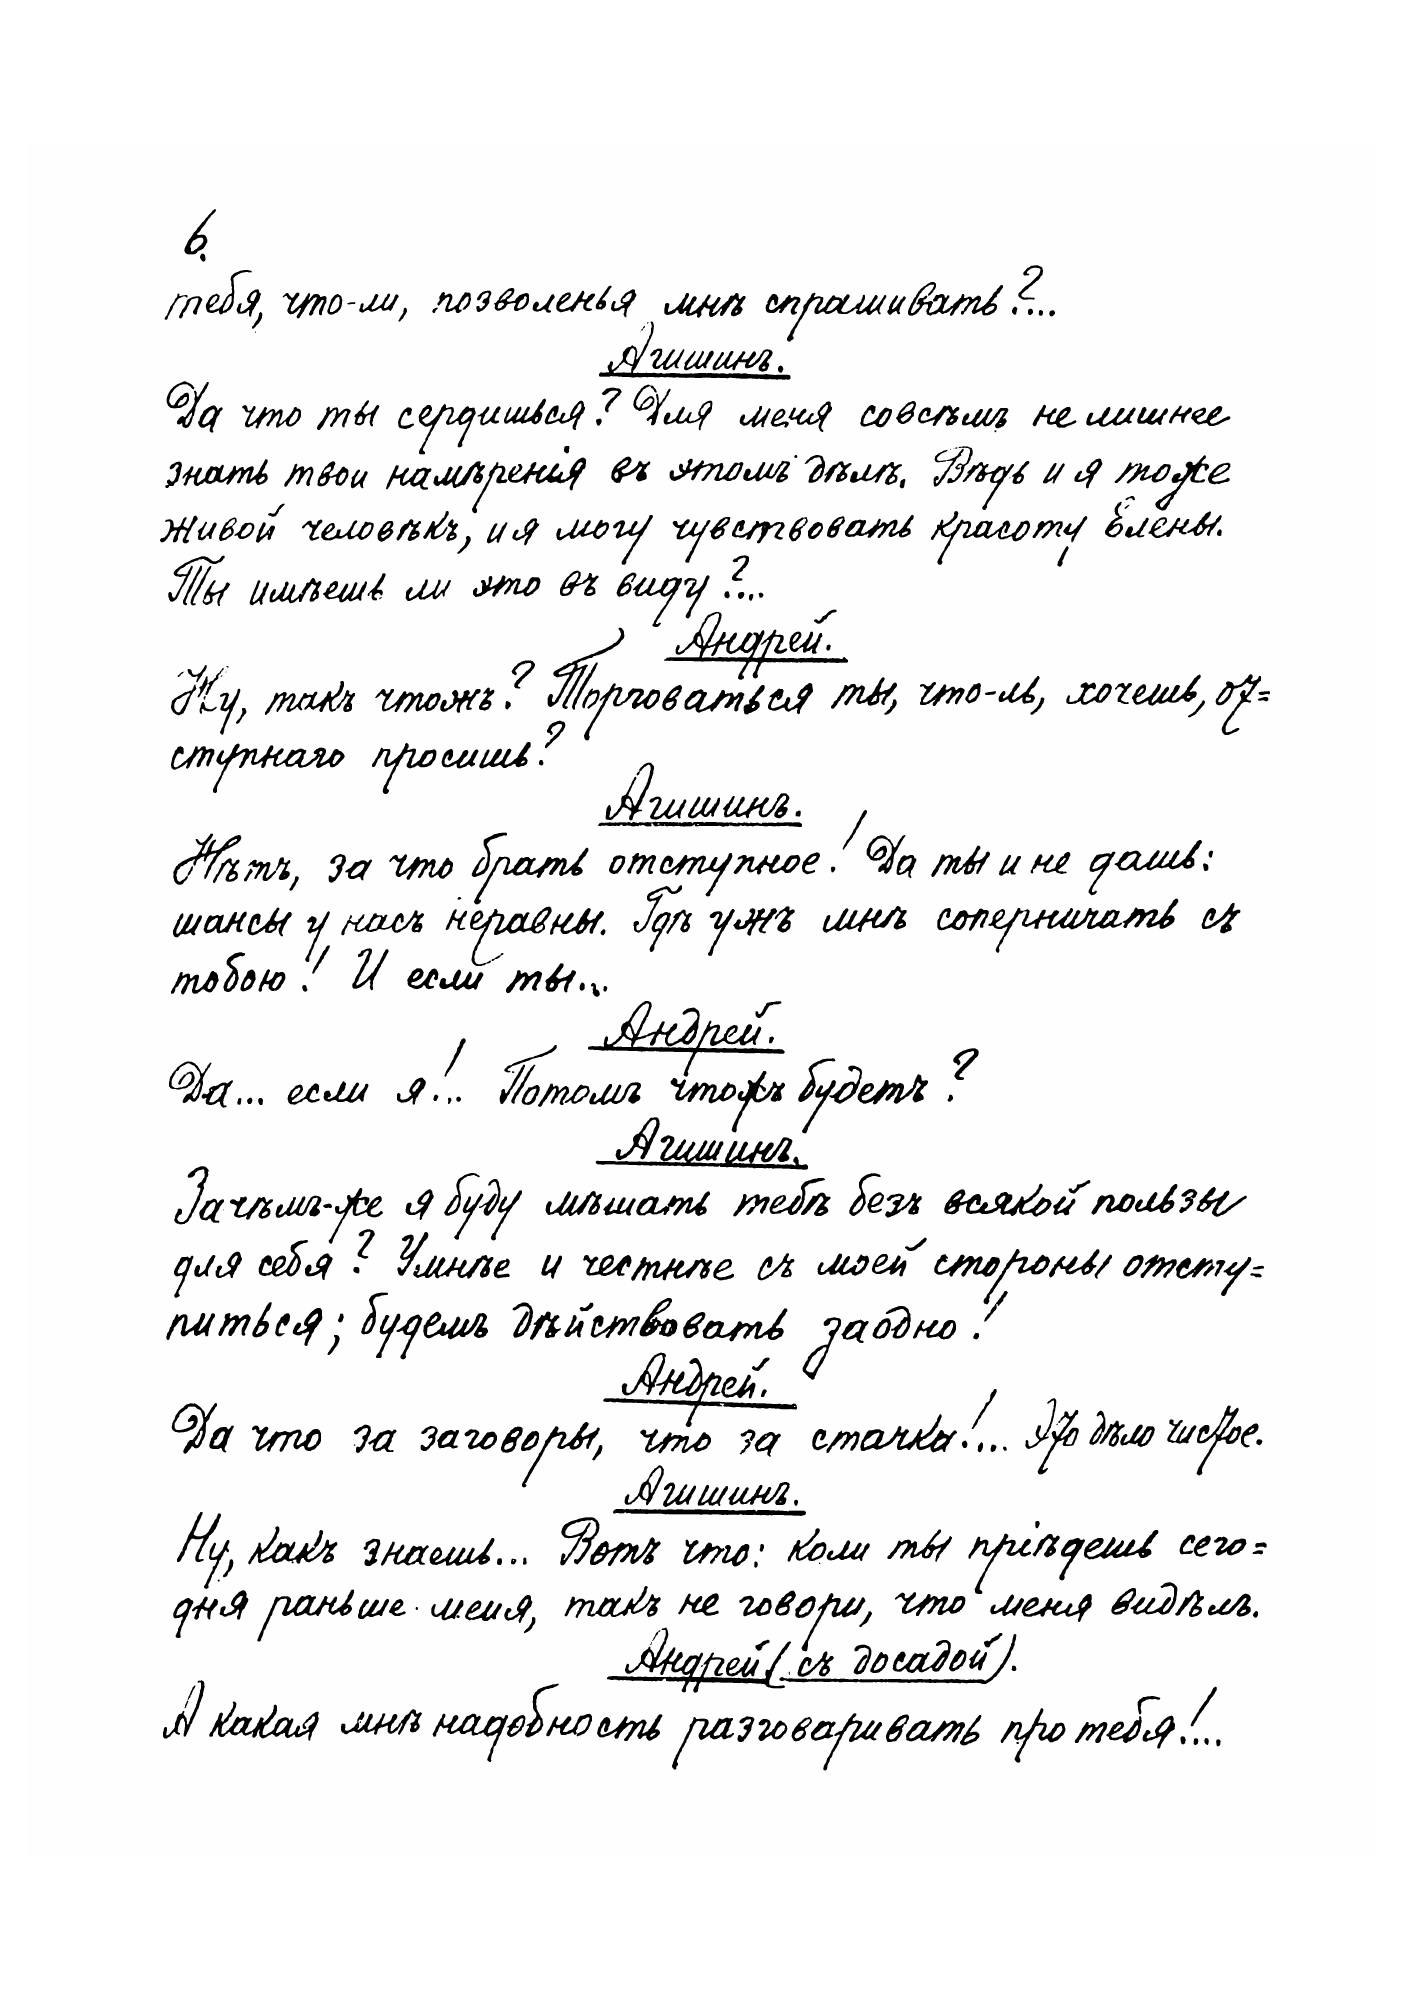 6.
тебя, что-ли, позволенья мнѣ спрашивать?...
Агишинъ.
Да что ты сердишься? Для меня совсѣмъ не лишнее
знать твои намѣренія въ этомъ дѣлѣ. Вѣдь и я тоже
живой человѣкъ, и я могу чувствовать красоту Елены.
Ты имѣешь ли это въ виду?...
Андрей.
Ну, такъ чтожъ? Торговаться ты, что-ль, хочешь, от=
ступнаго просишь?
Агишинъ.
Нѣтъ, за что брать отступное! Да ты и не дашь:
шансы у насъ неравны. Гдѣ ужъ мнѣ соперничать съ
тобою! И если ты...
Андрей.
Да... если я!.. Потомъ чтожъ будетъ?
Агишинъ.
Зачѣмъ-же я буду мѣшать тебѣ безъ всякой пользы
для себя? Умнѣе и честнѣе съ моей стороны отсту=
питься; будемъ дѣйствовать заодно!
Андрей.
Да что за заговоры, что за стачка!... Это дѣло чистое.
Агишинъ.
Ну, какъ знаешь... Вотъ что: коли ты пріѣдешь сего=
дня раньше меня, такъ не говори, что меня видѣлъ.
Андрей (съ досадой).
А какая мнѣ надобность разговаривать про тебя!...